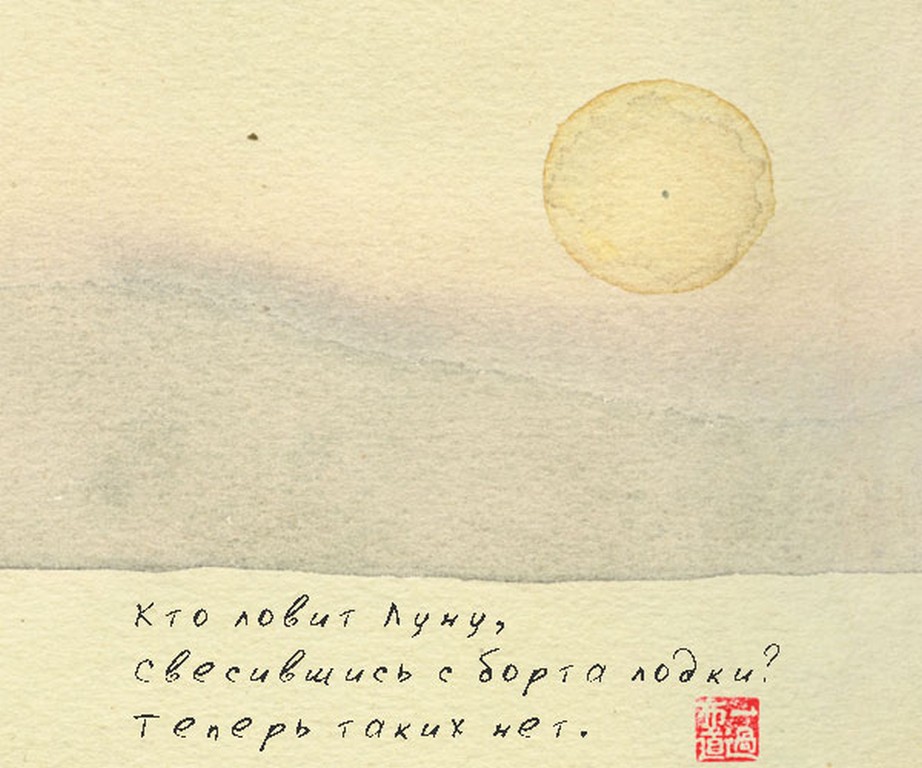 Кто ловит Луну,
свесившись с борта лодки?
Теперь таких нет.